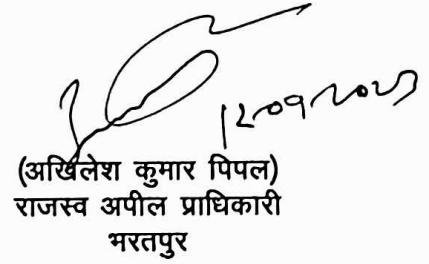 12-09-2023
(अखिलेश कुमार पिपल)
राजस्व अपील प्राधिकारी
भरतपुर